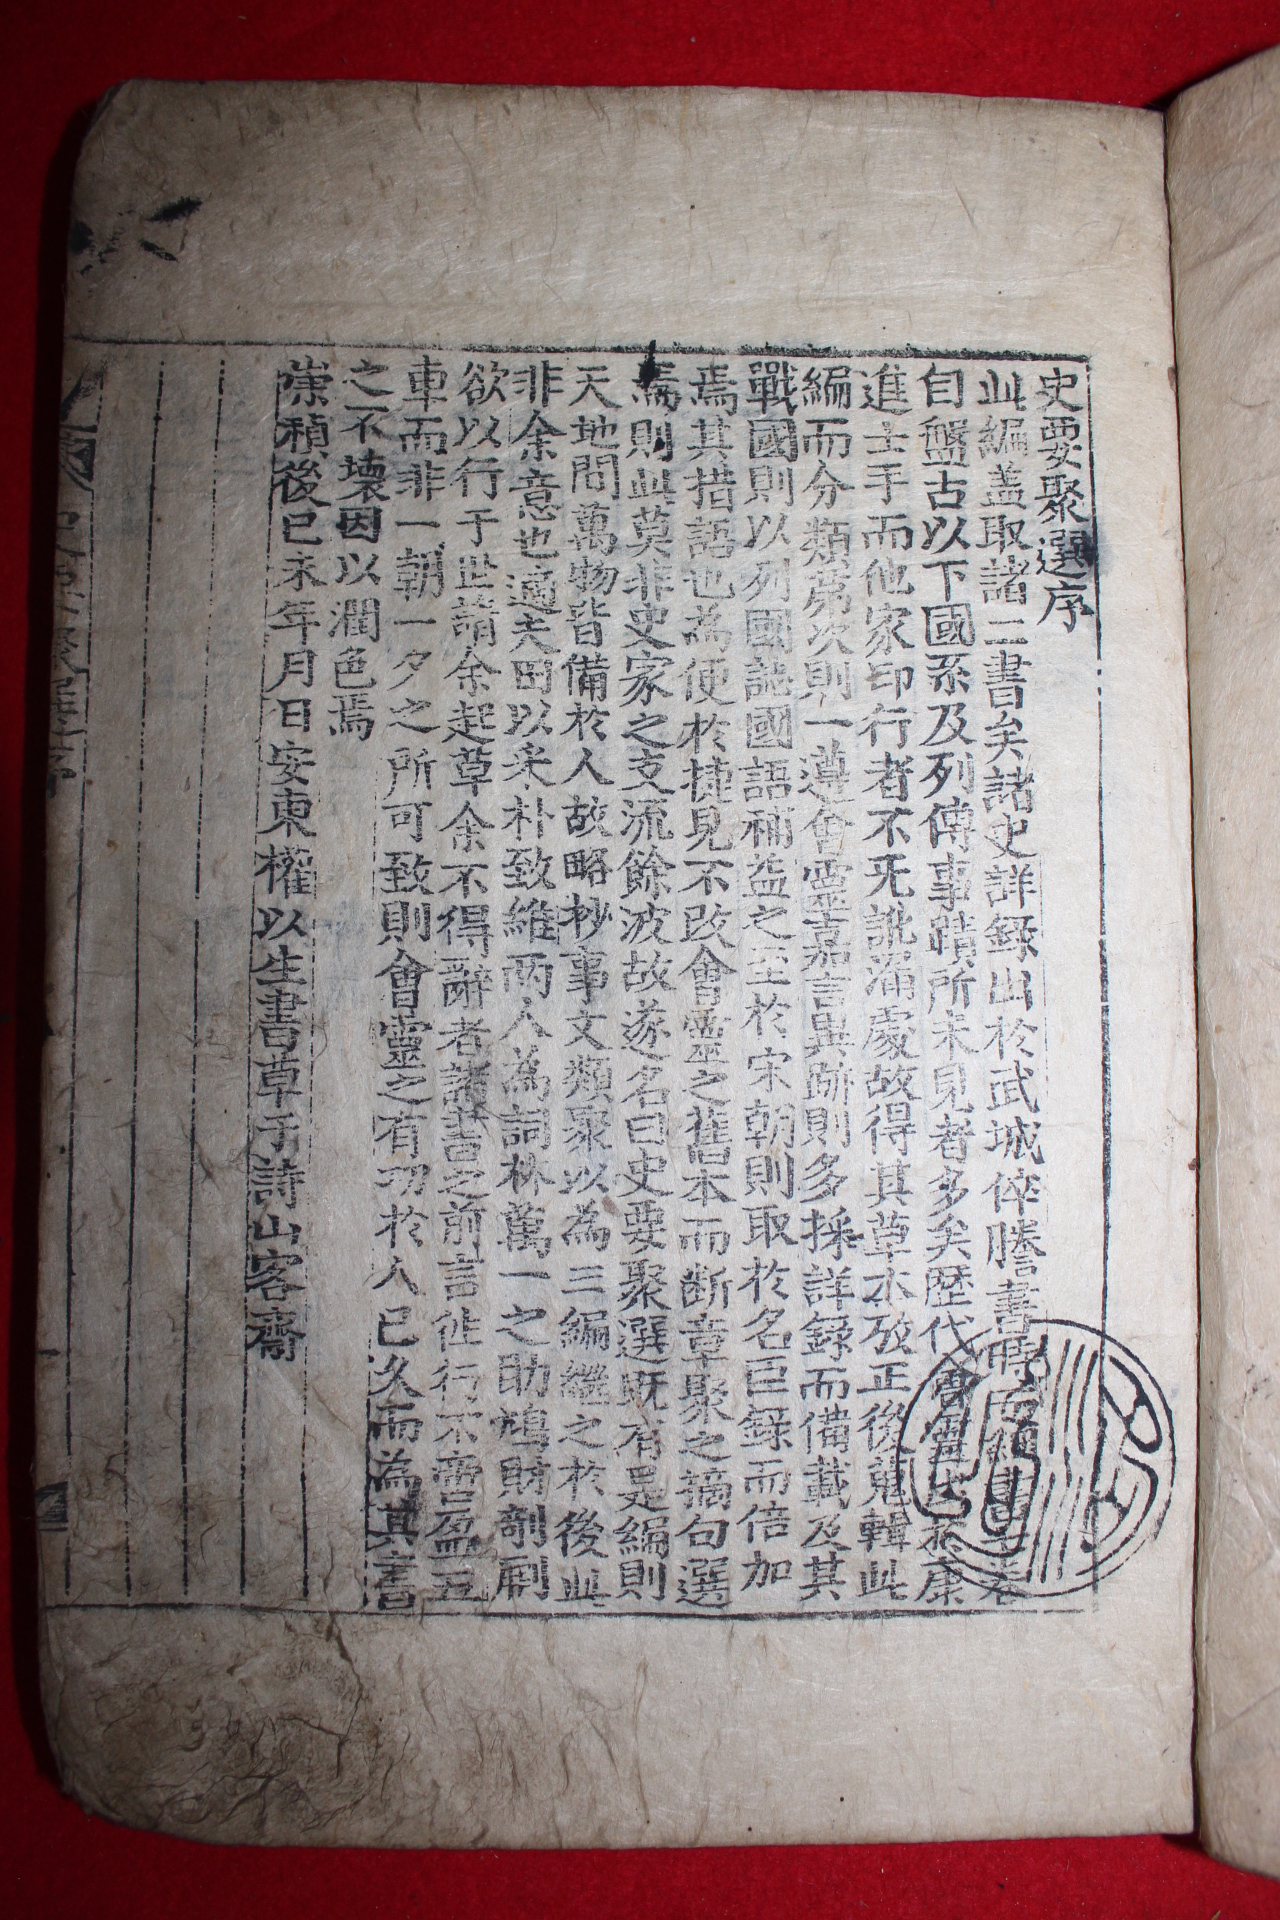 史要聚選序
此編盖取諸二書矣諸史詳錄出於武城倅謄書時而
自盤古以下國系及列傳事蹟所未見者多矣歷代會靈
進士手而他家印行者不旡訛漏處故得其草本攷正後蒐輯此
編而分類苐次則一遵會靈嘉言異跡則多採詳錄而備載及其
戰國則以列國誌國語補益之至於宋朝則取於名臣錄而倍加
焉其措語也為便於捷見不改會靈之舊本而断章聚之摘句選
焉則此莫非史家之支流餘波故遂名曰史要聚選既有是編則
天地間萬物皆備於人故略抄事文類聚以為三編継之於後此
非余意也適夫田以采朴致維兩人為詞林萬一之助鳩財剞劂
欲以行于世請余起草余不得辭者諸書之前言徃行不啻盈五
車而非一朝一夕之所可致則會靈之有功於人已久而為其書
之不壊因以潤色焉
崇禎後己未年月日安東權以生書草于詩山客齋